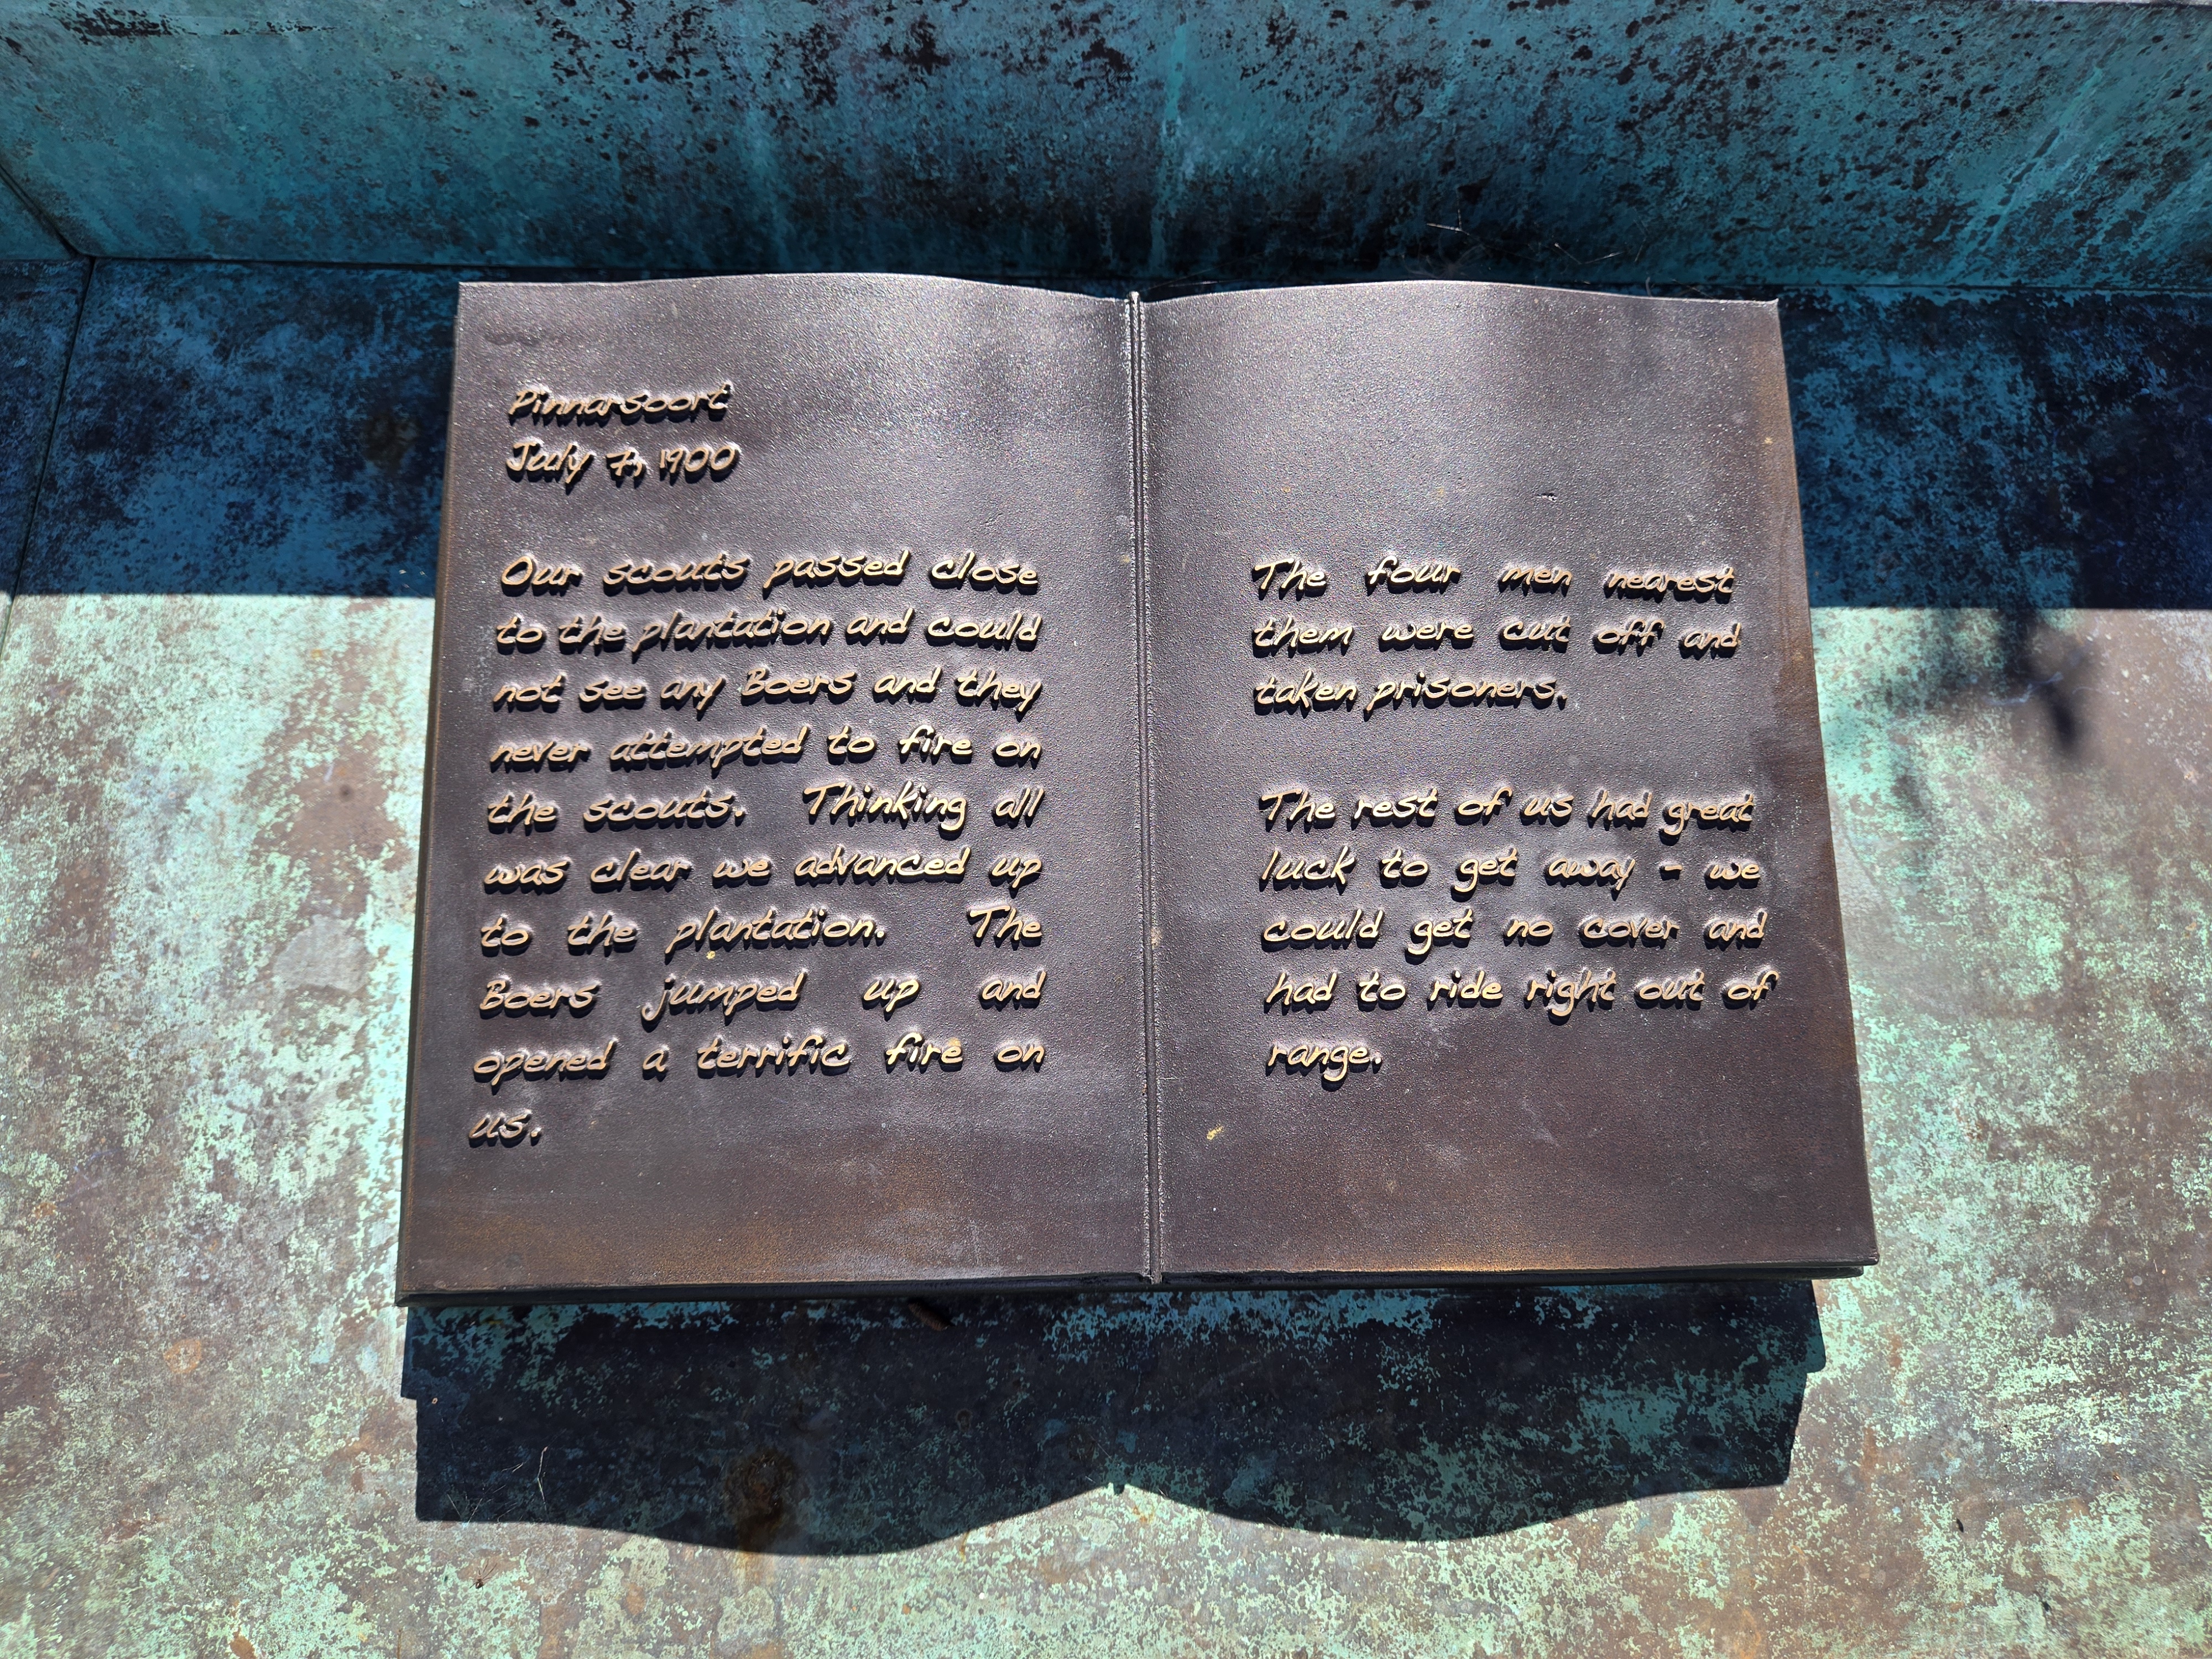 Pinnarsoort
July 7, 1900
Our scouts passed close
to the plantation and could
not see any Boers and they
never attempted to fire on
the scouts. Thinking all
was clear we advanced up
to the plantation. The
Boers jumped up and
opened a terrific fire on
us.
The four men nearest
them were cut off and
taken prisoners.
The rest of us had great
luck to get away - we
could get no cover and
had to ride right out of
range.